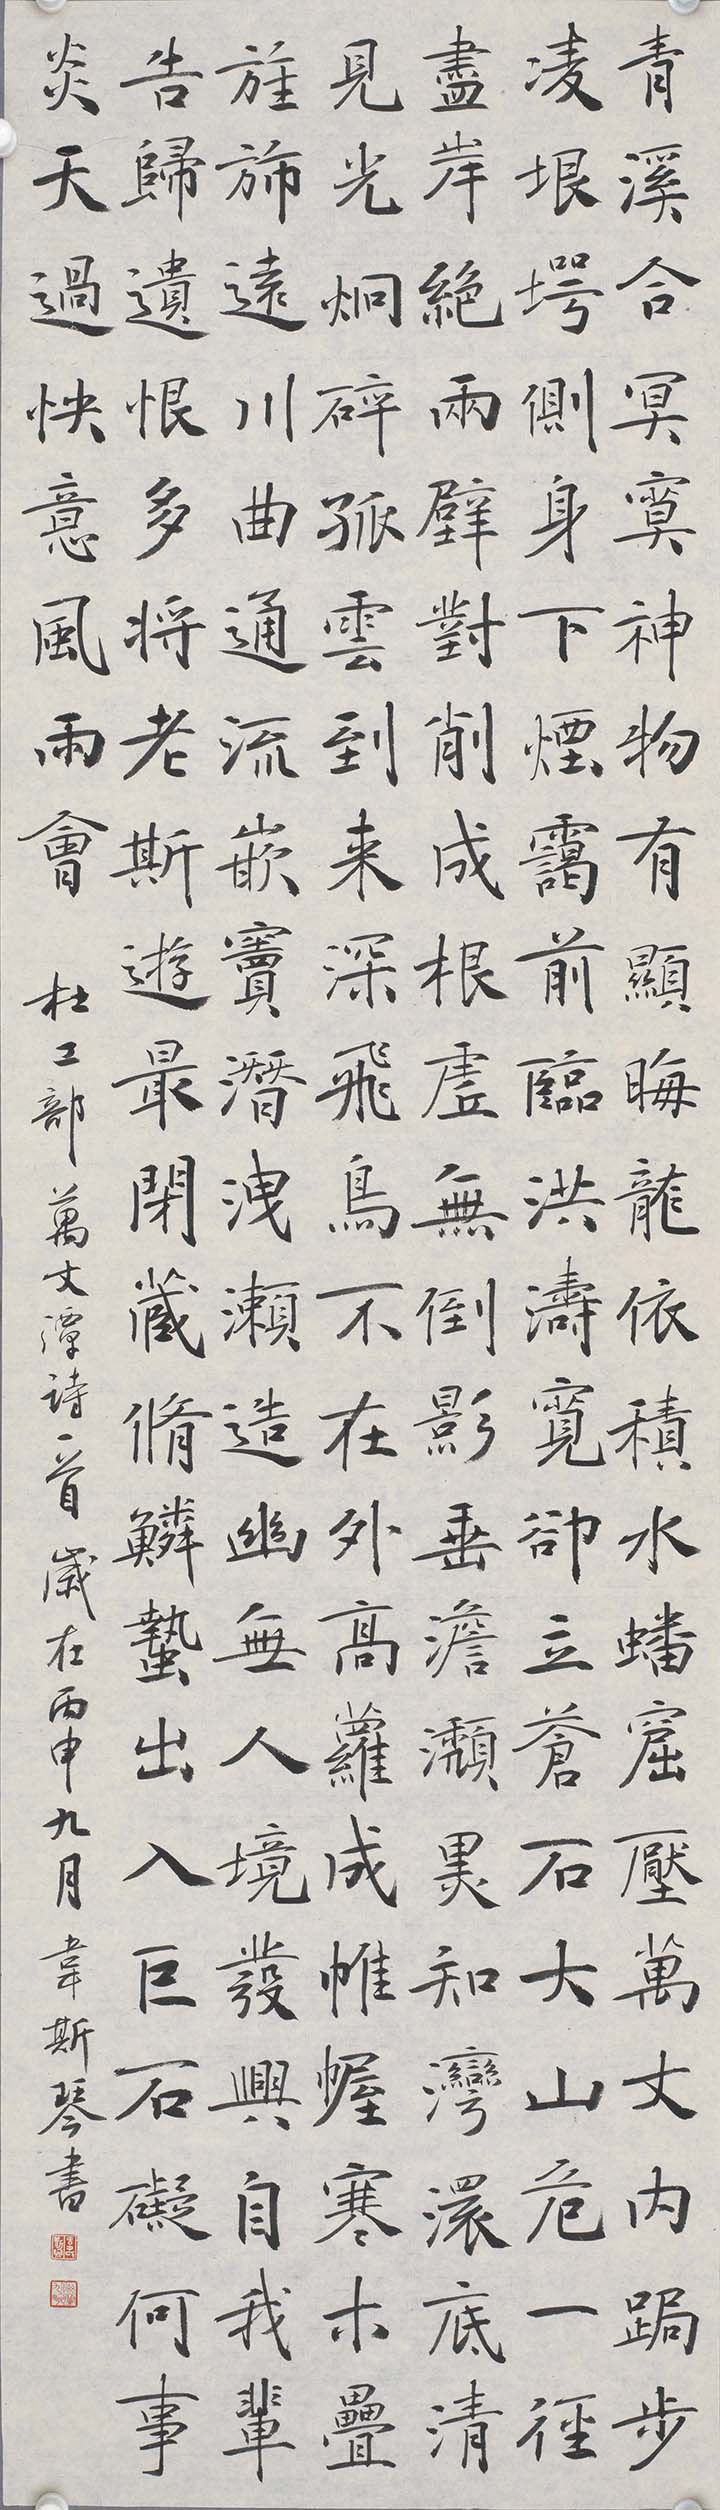 青溪合冥寞神物有顯晦龍依積水蟠窟壓萬丈內跼步
凌垠堮側身下煙靄前臨洪濤寬卻立蒼石大山危一徑
盡岸絕兩壁對削成根虛無倒影垂澹瀩黑知灣澴底清
見光炯碎孤雲到来深飛鳥不在外高蘿成帷幄寒木疊
旌旆遠川曲通流嵌竇潛洩瀨造幽無人境發興自我輩
告歸遺恨多將老斯遊最閉藏脩鱗蟄出入巨石礙何事
炎天過快意風雨會 杜工部萬丈潭詩一首歲在丙申九月韋斯琴書